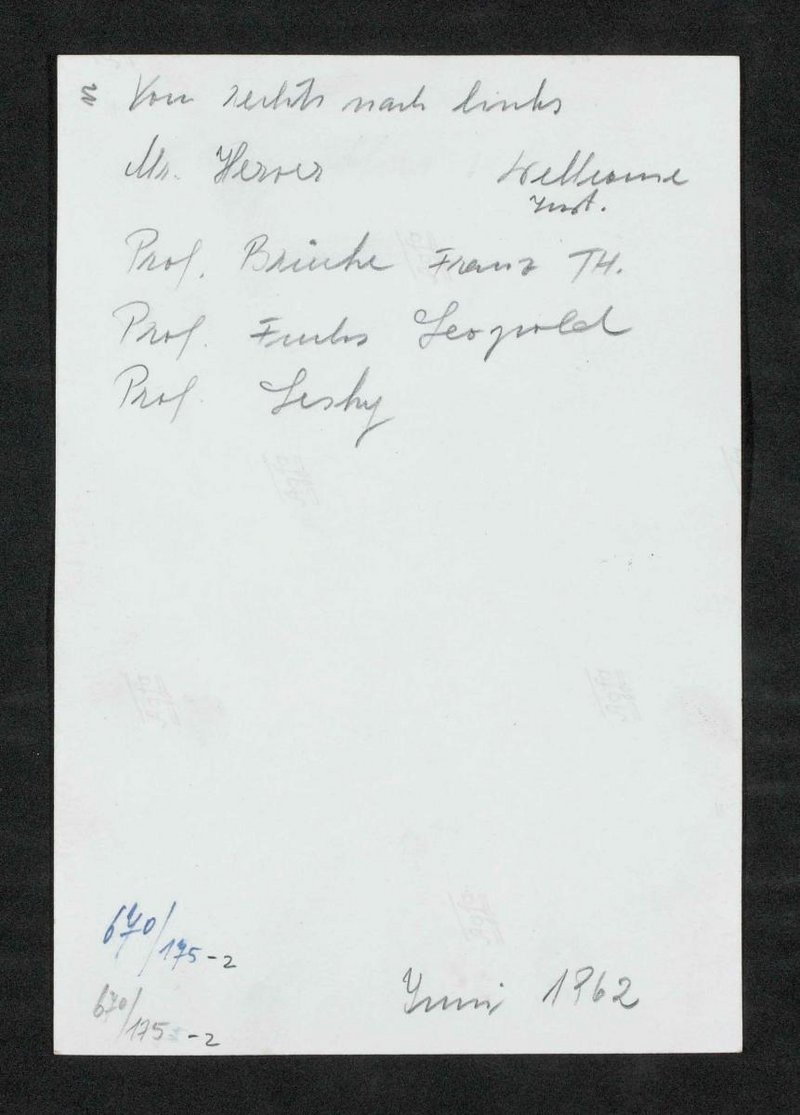 Von rechts nach links
Mr. Herver Wellcome
Inst.
Prof. Brücke Franz TH.
Prof. Fuchs Leopold
Prof. Lesky
670/175-2
Juni 1962
670/175-2